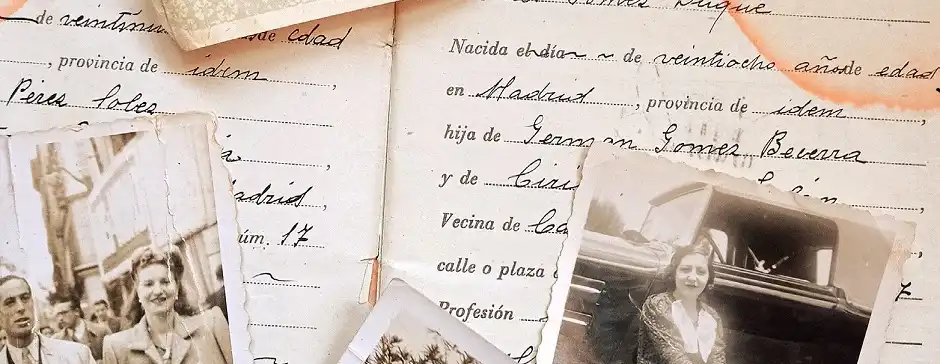 de veintinu de edad
, provincia de idem ,
Peres Soles
,
adrid ,
úm. 17
Gomes Duque
Nacida el día ~ ~ de veintiocho años de edad
en Madrid , provincia de idem ,
hija de German Gomes Beverra
y de Ciri
Vecina de Ca
calle o plaza 7
Profesión